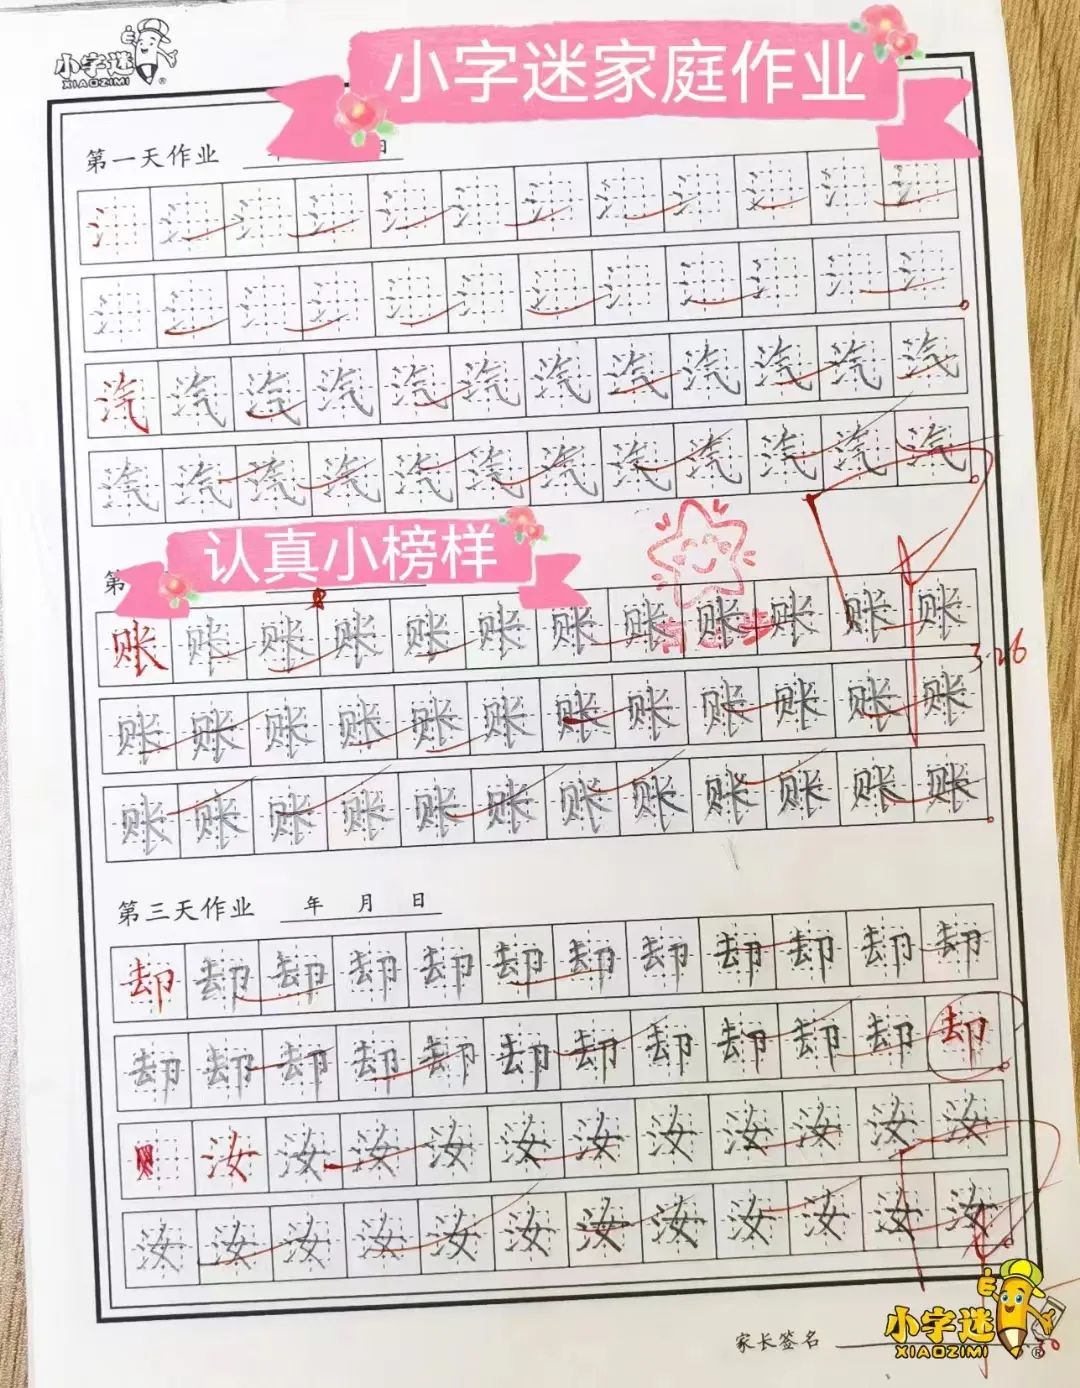 小字迷
XIAOZIMI
®
小字迷家庭作业
第一天作业 日
氵 氵 氵 氵 氵 氵 氵 氵 氵 氵 氵 氵
氵 氵 氵 氵 氵 氵 氵 氵 氵 氵 氵 氵
汽 汽 汽 汽 汽 汽 汽 汽 汽 汽 汽 汽
汽 汽 汽 汽 汽 汽 汽 汽 汽 汽 汽 汽
认真小榜样
第
账 账 账 账 账 账 账 账 账 账 账 账
3.26
账 账 账 账 账 账 账 账 账 账 账 账
账 账 账 账 账 账 账 账 账 账 账 账
第三天作业 年 月 日
却 却 却 却 却 却 却 却 却 却 却 却
却 却 却 却 却 却 却 却 却 却 却 却
汝 汝 汝 汝 汝 汝 汝 汝 汝 汝 汝
汝 汝 汝 汝 汝 汝 汝 汝 汝 汝 汝 汝
家长签名
小字迷
XIAOZIMI
®